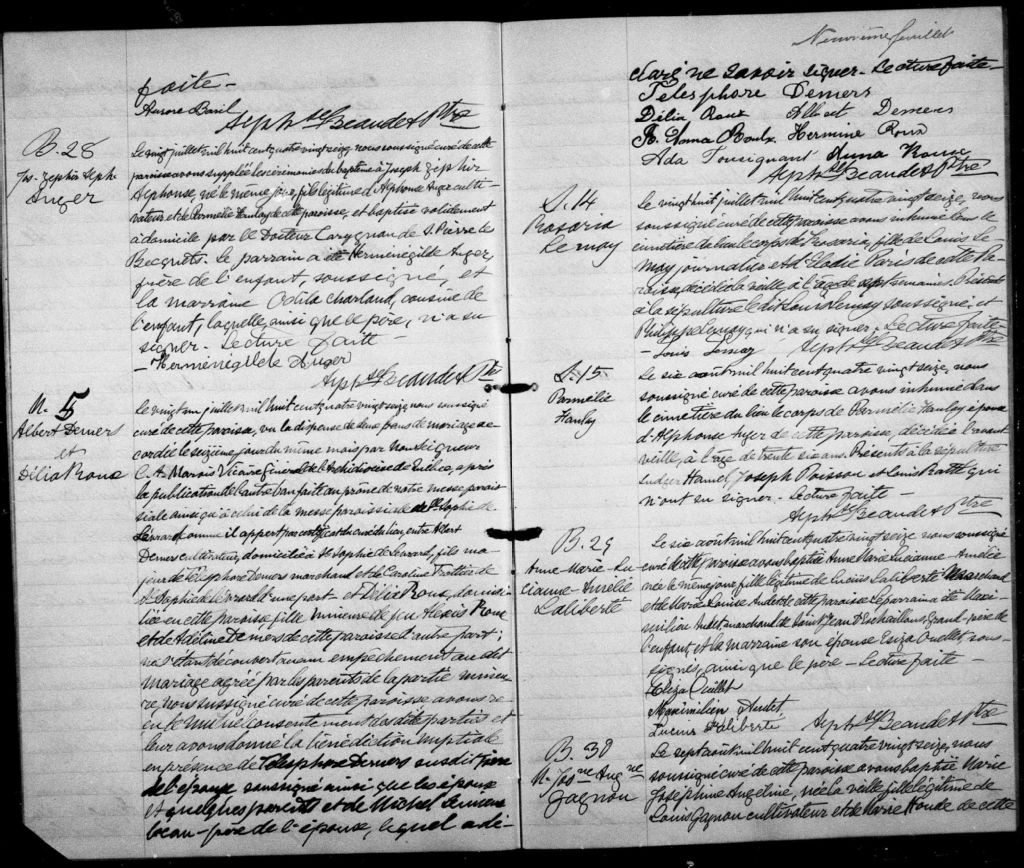 faite -
Aurore Baril
Alph. de Beaudet Ptre
B. 28
Jos. Zéphir Alph.
Auger
Le vingt juillet mil huit cent quatre vingt seize, nous soussigné curé de cette
paroisse avons supplée les cérémonies du baptême à Joseph Zéphir
Alphonse, né le même jour, fils légitime d'Alphonse Auger culti-
vateur et de Parmélie Hanlay de cette paroisse, et baptisé validement
à domicile par le Docteur Carignan de S. Pierre les
Becquets. Le parrain a été Herménégilde Auger,
frère de l'enfant, soussigné, et
la marraine Odila Charland, cousine de
l'enfant, laquelle, ainsi que le père, n'a su
signer. Lecture faite -
- Herménégilde Auger
Alph. de Beaudet Ptre
M. 5
Albert Demers
et
Délia Roux
Le vingt un juillet mil huit cent quatre vingt seize, nous soussigné
curé de cette paroisse, vu la dispense de deux bans de mariage ac-
cordée le seizième jour du même mois par Monseigneur
C. A. Marois Vicaire Général de l'Archidiocèse de Québec, après
la publication de l'autre ban faite au prône de notre messe parois-
siale ainsi qu'à celui de la messe paroissiale de Ste Sophie de
Lévrard comme il appert par certificat du curé du lieu, entre Albert
Demers cultivateur, domicilié à Ste Sophie de Lévrard, fils ma-
jeur de Télesphore Demers marchand et de Caroline Trottier de
Ste Sophie de Lévrard d'une part et Délia Roux, domici-
liée en cette paroisse fille mineure de feu Alexis Roux
et de Adéline Demers de cette paroisse d'autre part;
ne s'étant découvert aucun empêchement au dit
mariage agréé par les parents de la partie mineu-
re, nous soussigné curé de cette paroisse avons re-
çu le mutuel consentement des dites parties et
leur avons donné la bénédiction nuptiale
en présence de Télesphore Demers susdit père
de l'époux soussigné ainsi que les époux
et quelques parents et de Michel
beau-père de l'épouse, lequel a dé-
Neuvième feuillet
claré ne savoir signer - Lecture faite -
Télesphore Demers
Délia Roux Albert Demers
Hermine Roux
Ada Tousignant Anna Roux
Alph. de Beaudet Ptre
S. 14
Rosaria
Lemay
Le vingt huit juillet mil huit cent quatre vingt seize, nous
soussigné curé de cette paroisse avons inhumé dans le
cimetière du lieu le corps de Rosaria, fille de Louis Le-
may, journalier et d'Elodie Paris de cette Pa-
roisse, décédée la veille, à l'âge de sept semaines. Présents
à la sépulture le dit Louis Lemay soussigné, et
Philippe Lemay, qui n'a su signer. Lecture faite -
- Louis Lemay
Alph. de Beaudet Ptre
S. 15
Parmélie
Hanlay
Le six août mil huit cent quatre vingt seize, nous
soussigné curé de cette paroisse avons inhumé dans
le cimetière du lieu le corps de Parmélie Hanlay épouse
d'Alphonse Auger de cette paroisse, décédée l'avant
veille, à l'âge de trente six ans. Présents à la sépulture
Ludger Hamel, Joseph Poisson et Louis qui
n'ont su signer. Lecture faite -
Alph. de Beaudet Ptre
B. 29
Anne Marie Lu-
cianne-Amélie
Laliberté
Le six août mil huit cent quatre vingt seize nous soussigné
curé de cette paroisse avons baptisé Anne Marie Lucianne-Amélie
née le même jour, fille légitime de Lucius Laliberté Marchand
et de Marie Louise Audet de cette paroisse. Le parrain a été Maxi-
milien Audet marchand de Saint Jean Deschaillons, Grand-père de
l'enfant, et la marraine son épouse Eliza Ouellet, sous-
signés, ainsi que le père - Lecture faite -
Eliza Ouellet
Maximilien Audet
Lucius Laliberté
Alph. de Beaudet Ptre
B. 30
M. Josne Angne
Gagnon
Le sept août mil huit cent quatre vingt seize, nous
soussigné curé de cette paroisse avons baptisé Marie
Joséphine Angéline, née la veille fille légitime de
Louis Gagnon cultivateur et de Marie de cette